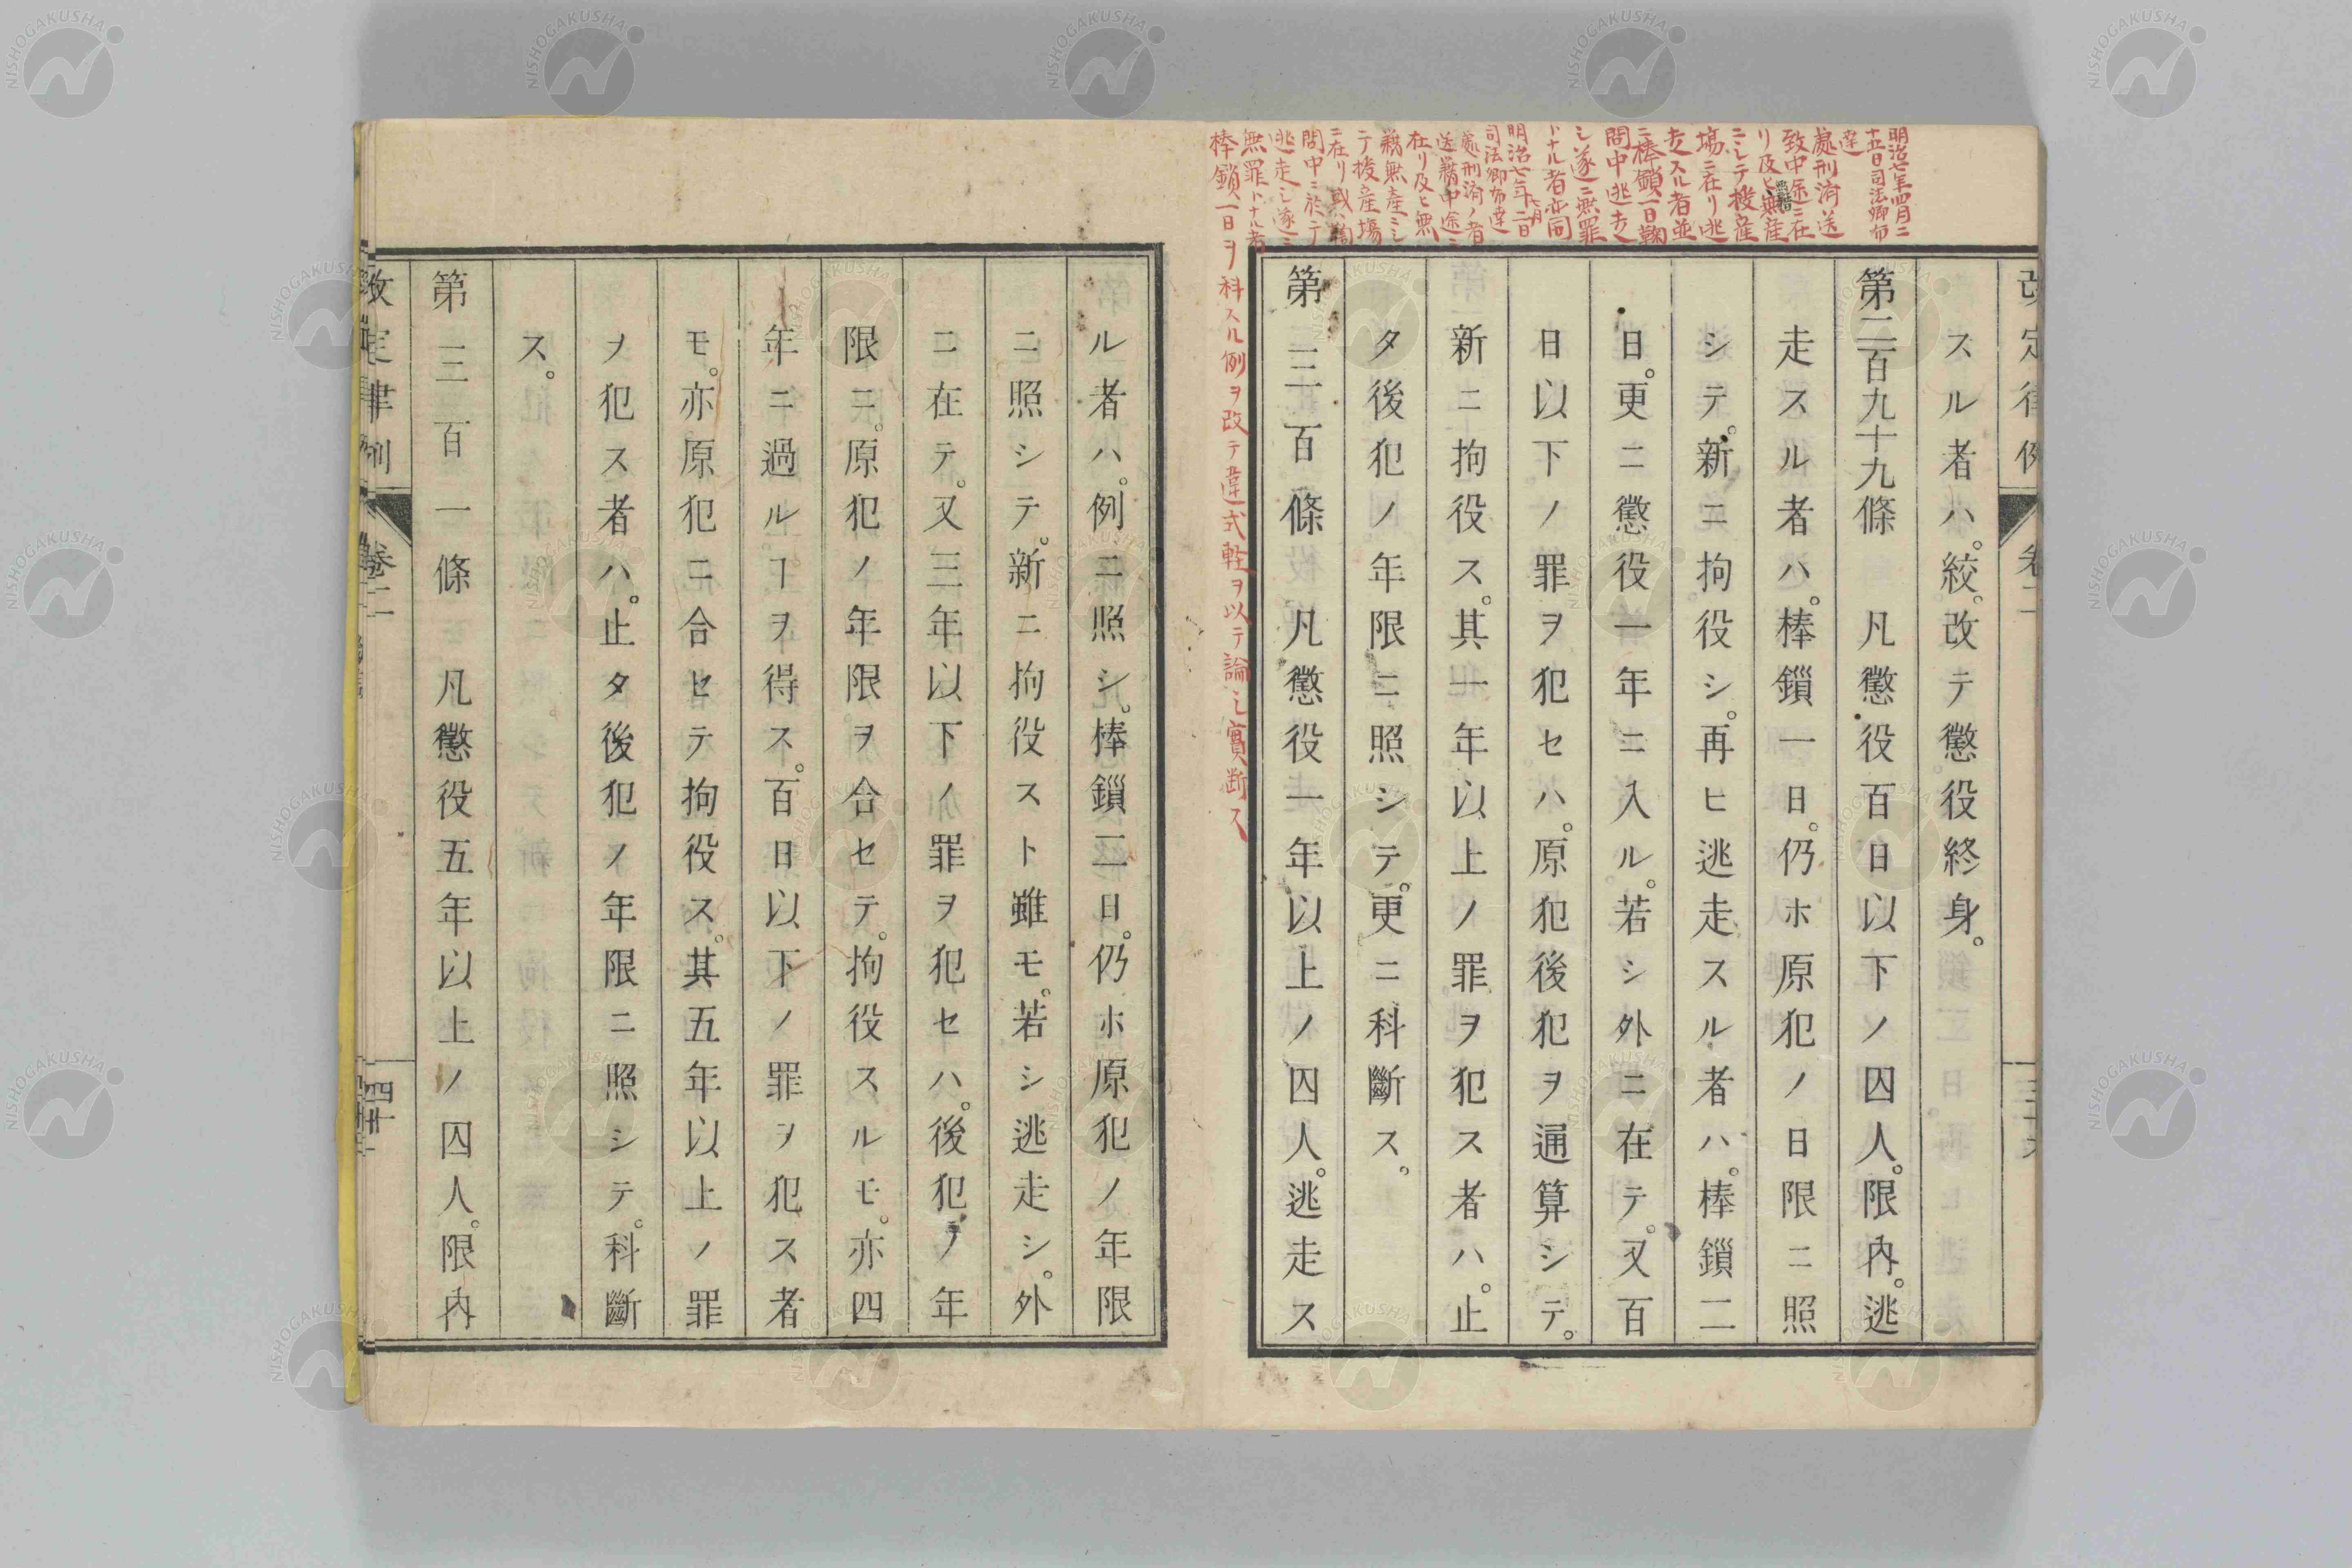 明治七年四月二
十五日司法卿布
達
處刑済送
致中途ニ在
リ及ヒ無産
ニシテ授産
場ニ在リ逃
走スル者並
ニ棒鎖一日鞫
問中逃走
シ遂ニ無罪
トナル者亦同
司法卿布達
處刑済ノ者
送籍中途ニ
在リ及ヒ無
籍無産ニシ
テ授産場
ニ在リ或ハ鞫
問中ニ於テ
逃走シ遂ニ
無罪トナル者
棒鎖一日ヲ科スル例ヲ改テ違式軽ヲ以テ論シ實断ス
改定律例 卷二
スル者ハ。絞。改テ懲役終身。
第二百九十九條 凡懲役百日以下ノ囚人。限內。逃
走スル者ハ。棒鎖一日。仍ホ原犯ノ日限ニ照
シテ。新ニ拘役シ。再ヒ逃走スル者ハ。棒鎖二
日。更ニ懲役一年ニ入ル。若シ外ニ在テ。又百
日以下ノ罪ヲ犯セハ。原犯後犯ヲ通算シテ。
新ニ拘役ス。其一年以上ノ罪ヲ犯ス者ハ。止
タ後犯ノ年限ニ照シテ。更ニ科斷ス。
第三百條 凡懲役一年以上ノ囚人。逃走ス
ル者ハ。例ニ照シ。棒鎖二日。仍ホ原犯ノ年限
ニ照シテ。新ニ拘役スト雖モ。若シ逃走シ。外
ニ在テ。又三年以下ノ罪ヲ犯セハ。後犯ノ年
限ニ。原犯ノ年限ヲ合セテ。拘役スルモ。亦四
年ニ過ルヿヲ得ス。百日以下ノ罪ヲ犯ス者
モ。亦原犯ニ合セテ拘役ス。其五年以上ノ罪
ヲ犯ス者ハ。止タ後犯ノ年限ニ照シテ。科斷
ス。
第三百一條 凡懲役五年以上ノ囚人。限內
改定律例 卷二 四十
NISHOGAKUSHA